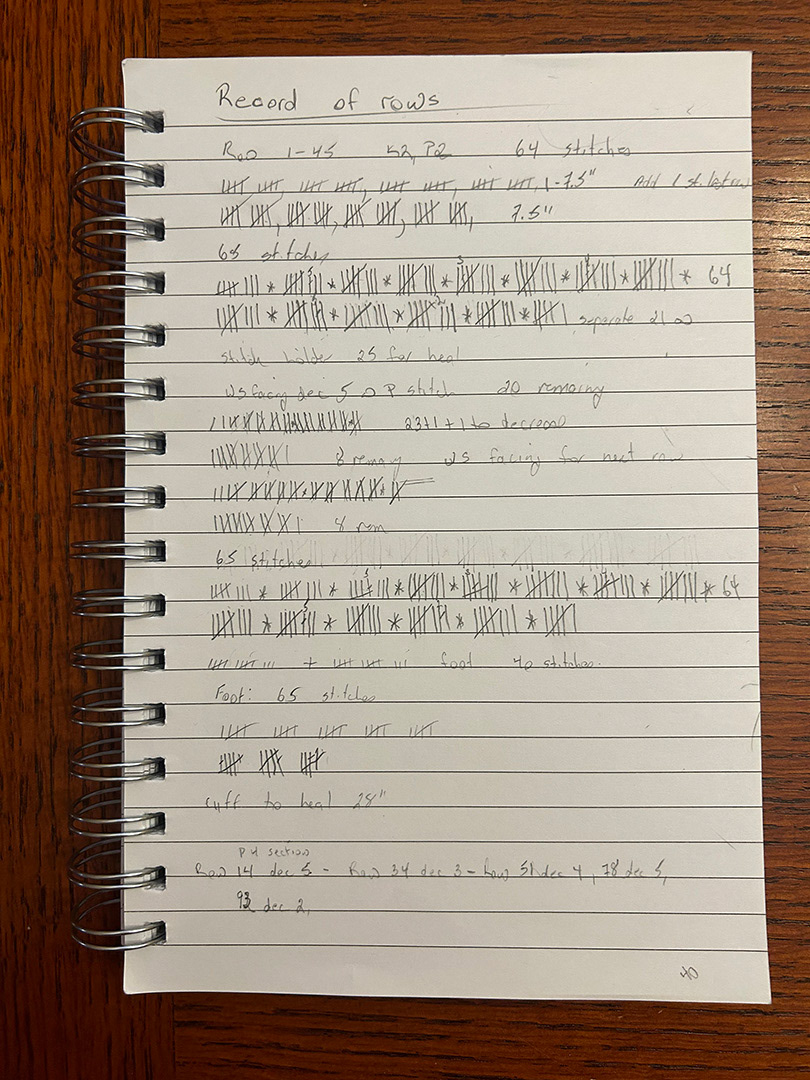 Record of rows
Row 1-45 K2, P2 64 stitches
1-7.5" Add 1 st. last row
7.5"
65 stitches
* * * * * * * 64
* * * * * separate 21 on
stitch holder 25 for heal
WS facing dec 5 on P stitch 20 remaining
23+1+1 to decrease
8 remaing WS facing for next row
8 rem
65 stitches
* * * * * * * 64
* * * * *
+ foot 40 stitches.
Foot: 65 stitches
cuff to heal 28"
P4 section
Row 14 dec 5 - Row 34 dec 3 - Row 51 dec 4, 78 dec 5,
93 dec 2,
40